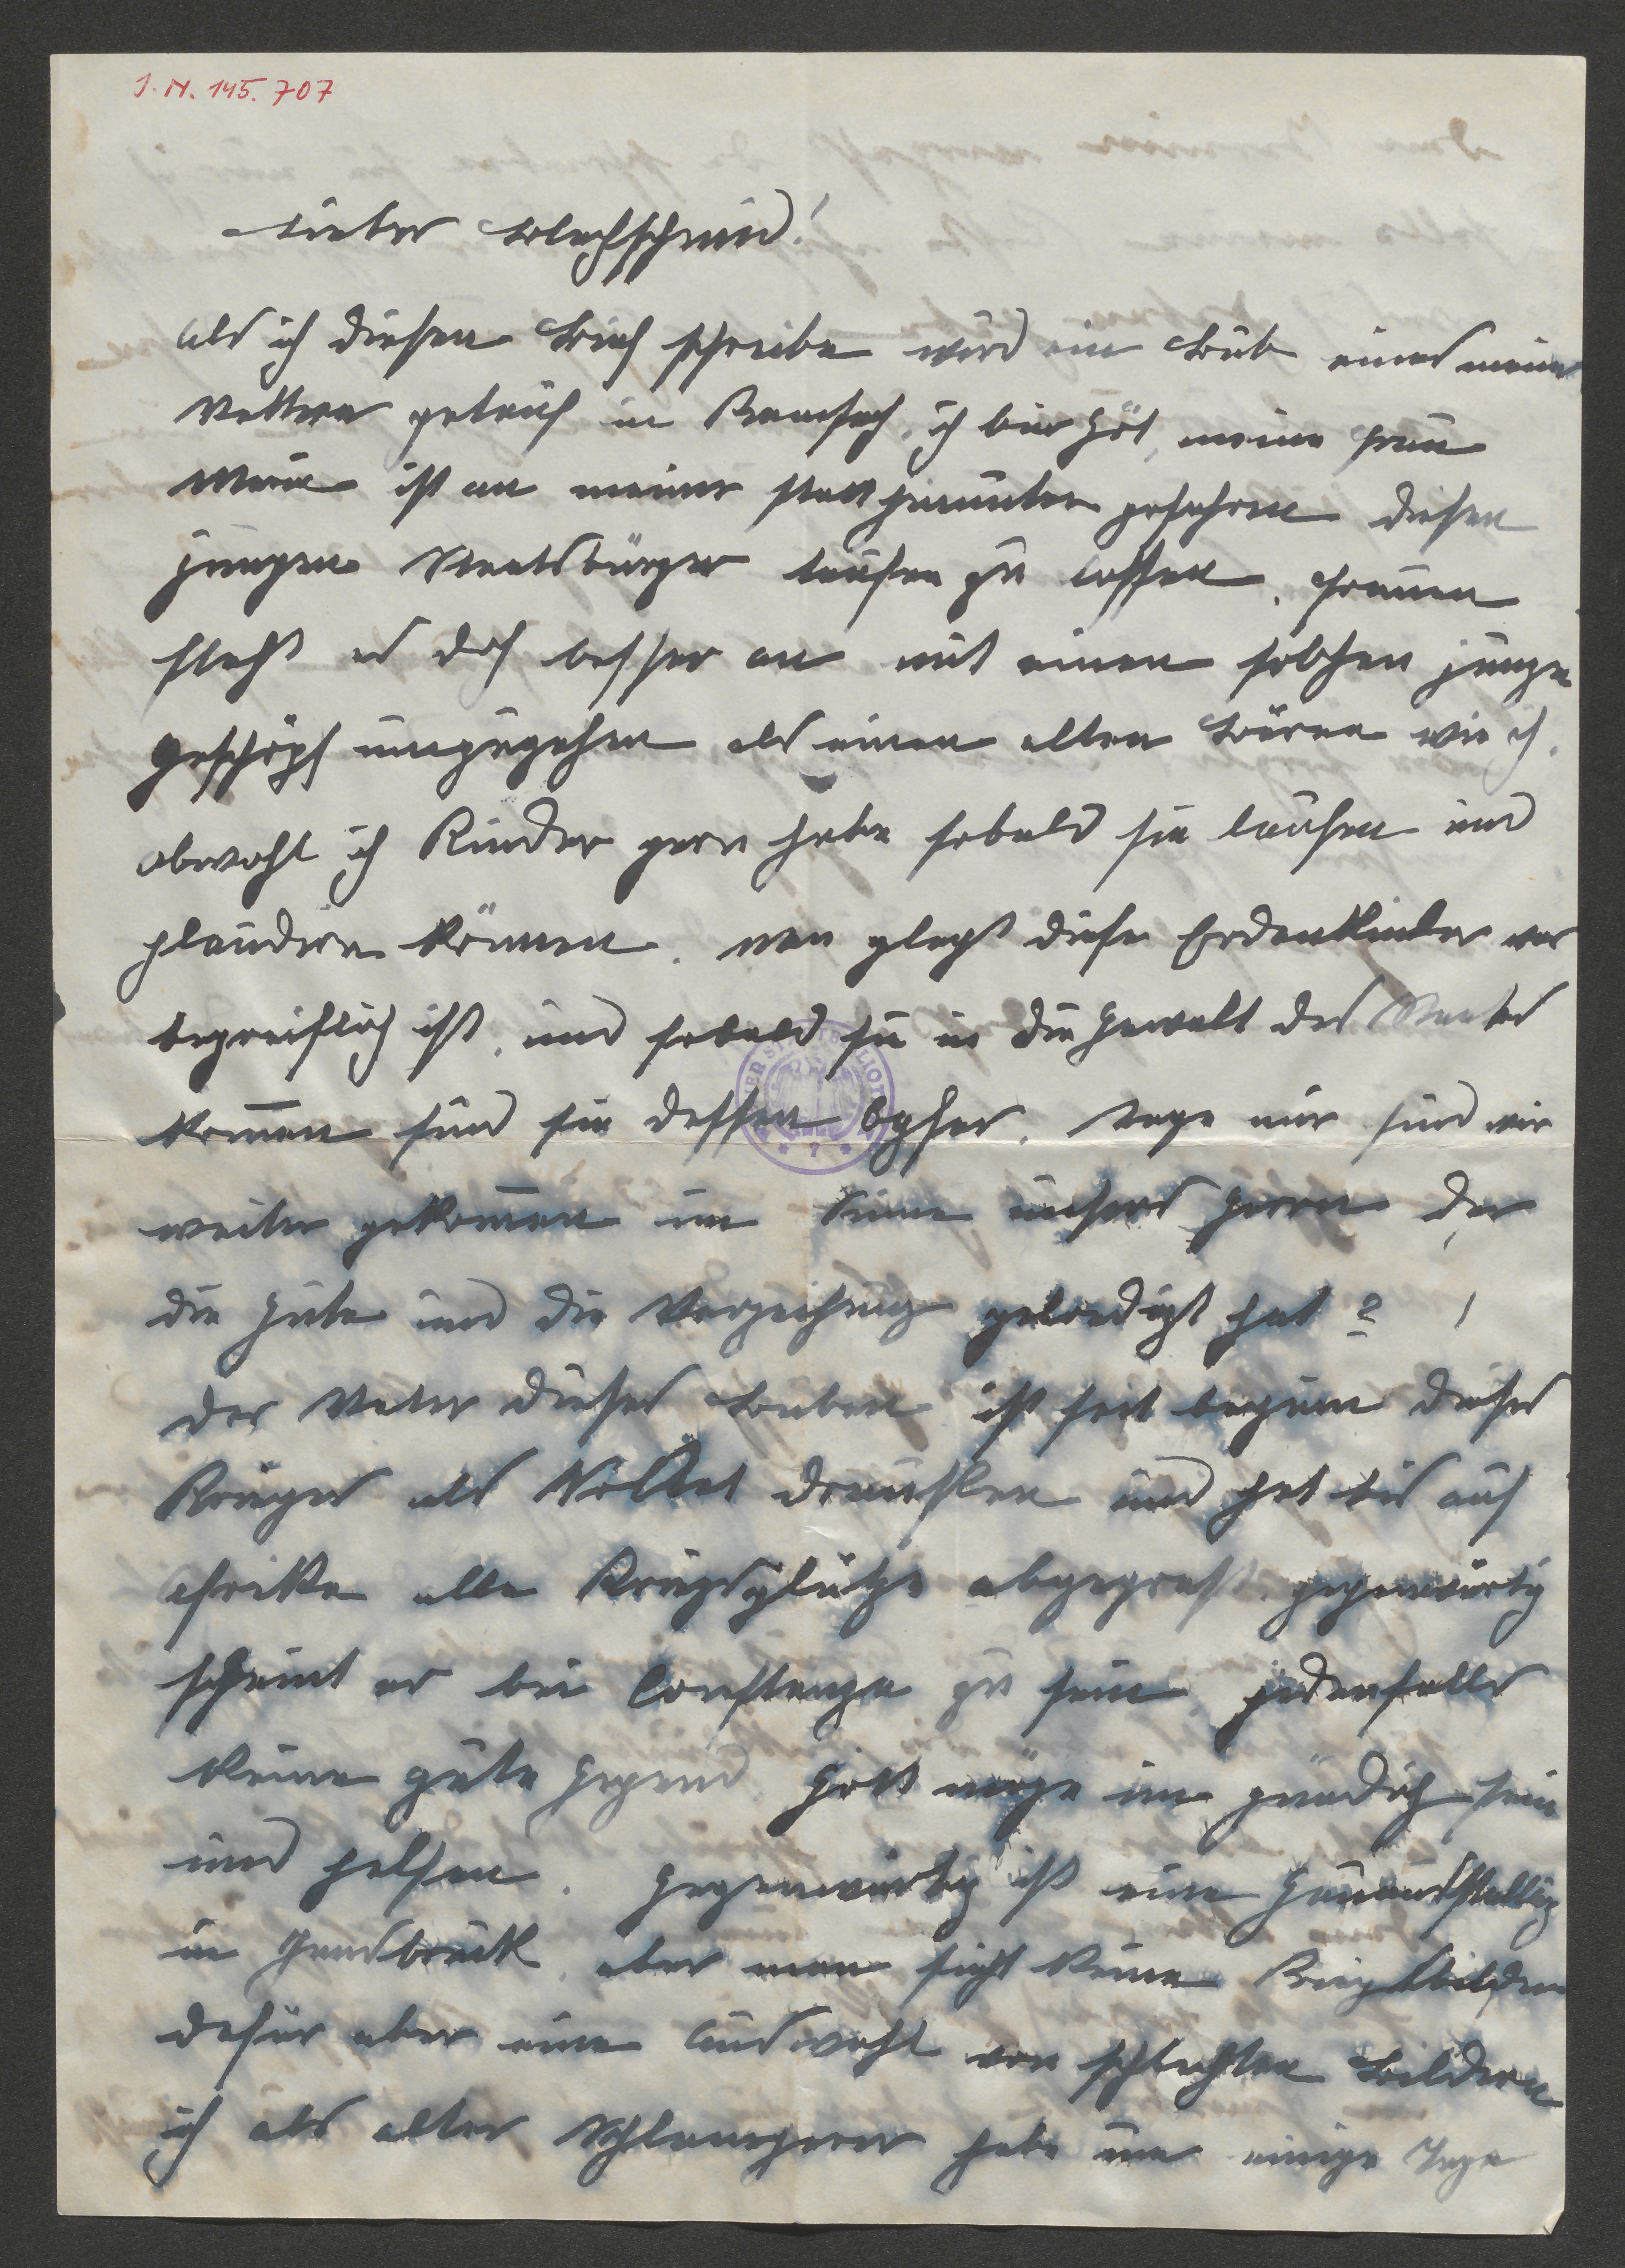 J.N. 145.707
Lieber Blechschmid!
als ich diesen Brief schreibe wird ein Bub eines meiner
Vettern getauft in Ramsach, ich bin Göt, meine Frau
Maria ist an meiner statt hinunter gefahren diesen
jungen Staatsbürger taufen zu lassen. Frauen
steht es doch besser an mit einen solchen jungen
Geschöpf umzugehen als einen alten Bären wie ich.
obwohl ich Kinder gern habe sobald sie laufen und
plaudern können. man pflegt diese Erdenkinder was
begreiflich ist, und sobald sie in die Gewalt des Staates
kommen sind sie dessen Opfer. sage mir sind wir
weiter gekommen im Sinne unsers Herrn der
die Güte und die Verzeihung geprediigt hat? !
der Vater dieses Buben ist seit beginn dieses
Krieges als Soldat draußen und hat bis auf
Afrika alle Kriegsplätze abgegrast. gegenwärtig
scheint er bei Constanza zu sein, jedenfalls
keine gute Gegend Gott möge im gnädig sein
und helfen. Gegenwärtig ist eine Gauausstellung
in Innsbruck, aber man sieht keine Kriegsbilder
dafür aber eine Auswahl von schlechten Bildern
ich als alter habe nun einige Tage